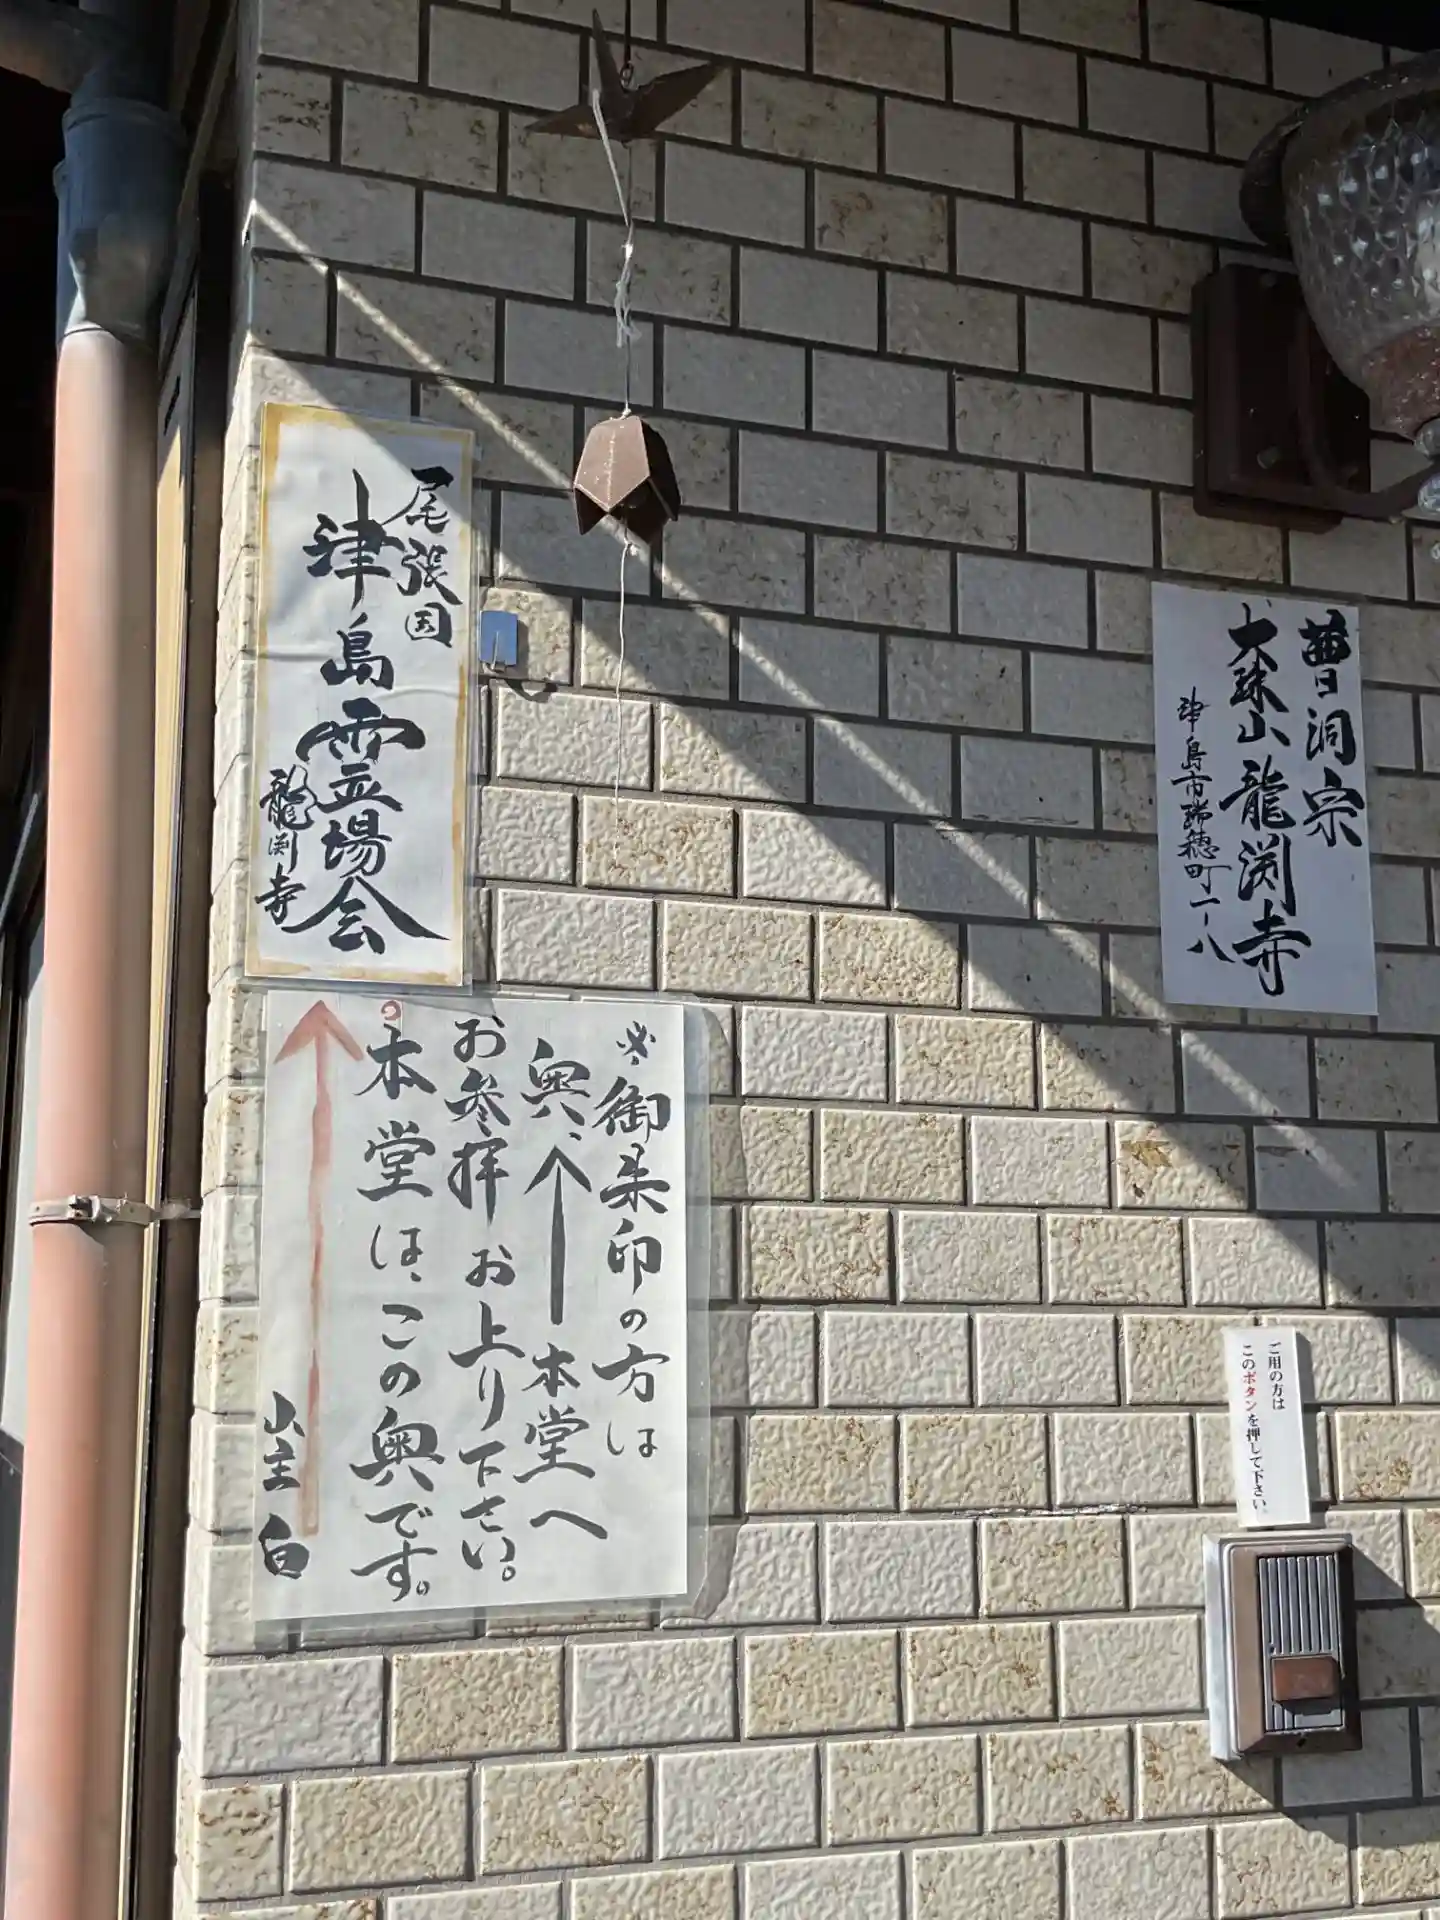 曹洞宗
大珠山龍渕寺
津島市瑞穂町一ー八
尾張国
津島霊場会
龍渕寺
※御朱印の方は
奥、↑本堂へ
お参拝お上り下さい。
。本堂は、この奥です。
山主 白
ご用の方は
このボタンを押して下さい。